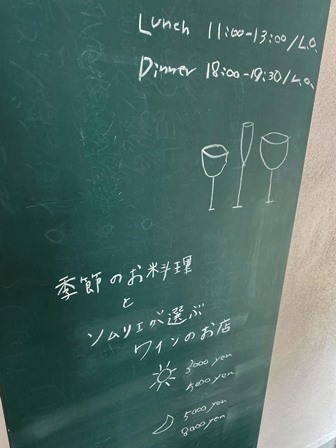 Lunch 11:00-13:00/L.O.
Dinner 18:00-19:30/L.O.
季節のお料理
と
ソムリエが選ぶ
ワインのお店
3000 yen
5000 yen
8000 yen